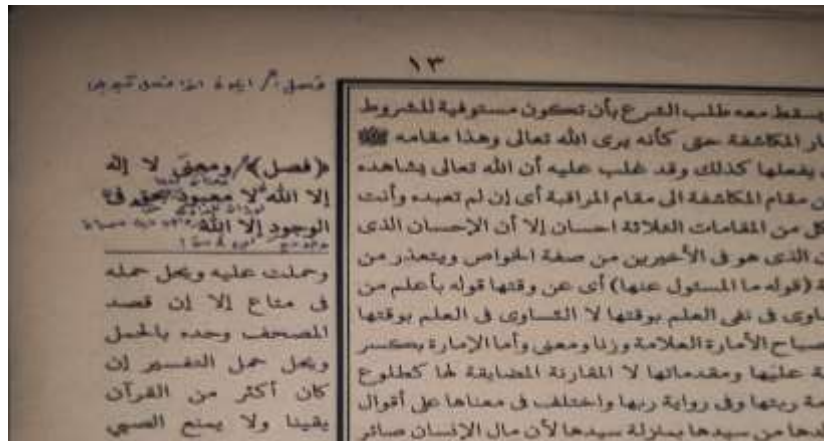 ١٣
يسقط معه طلب الشرع بأن تكون مستوفية للشروط
المكاشفة حتى كأنه يرى الله تعالى وهذا مقامه ﷺ
يفعلها كذلك وقد غلب عليه أن الله تعالى يشاهده
من مقام المكاشفة الى مقام المراقبة أى إن لم تعبده وأنت
كل من المقامات الثلاثة احسان إلا أن الإحسان الذى
الذى هو فى الأخيرين من صفة الخواص ويتعذر من
(قوله ما المسئول عنها) أى عن وقتها قوله بأعلم من
فى نفى العلم بوقتها لا التساوى فى العلم بوقتها
الأمارة العلامة وزنا ومعنى وأما الإمارة بكسر
عليها ومقدماتها لا المقارنة المضايقة لها كطلوع
ربتها وفى رواية ربها واختلف فى معناها على أقوال
من سيدها بمنزلة سيدها لأن مال الإنسان صائر
﴿فصل﴾ ومعنى لا إله
إلا الله لا معبود بحق فى
الوجود إلا الله
وحملت عليه ويحل حمله
فى متاع إلا إن قصد
المصحف وحده بالحمل
ويحل حمل التفسير إن
كان أكثر من القرآن
يقينا ولا يمنع الصبي